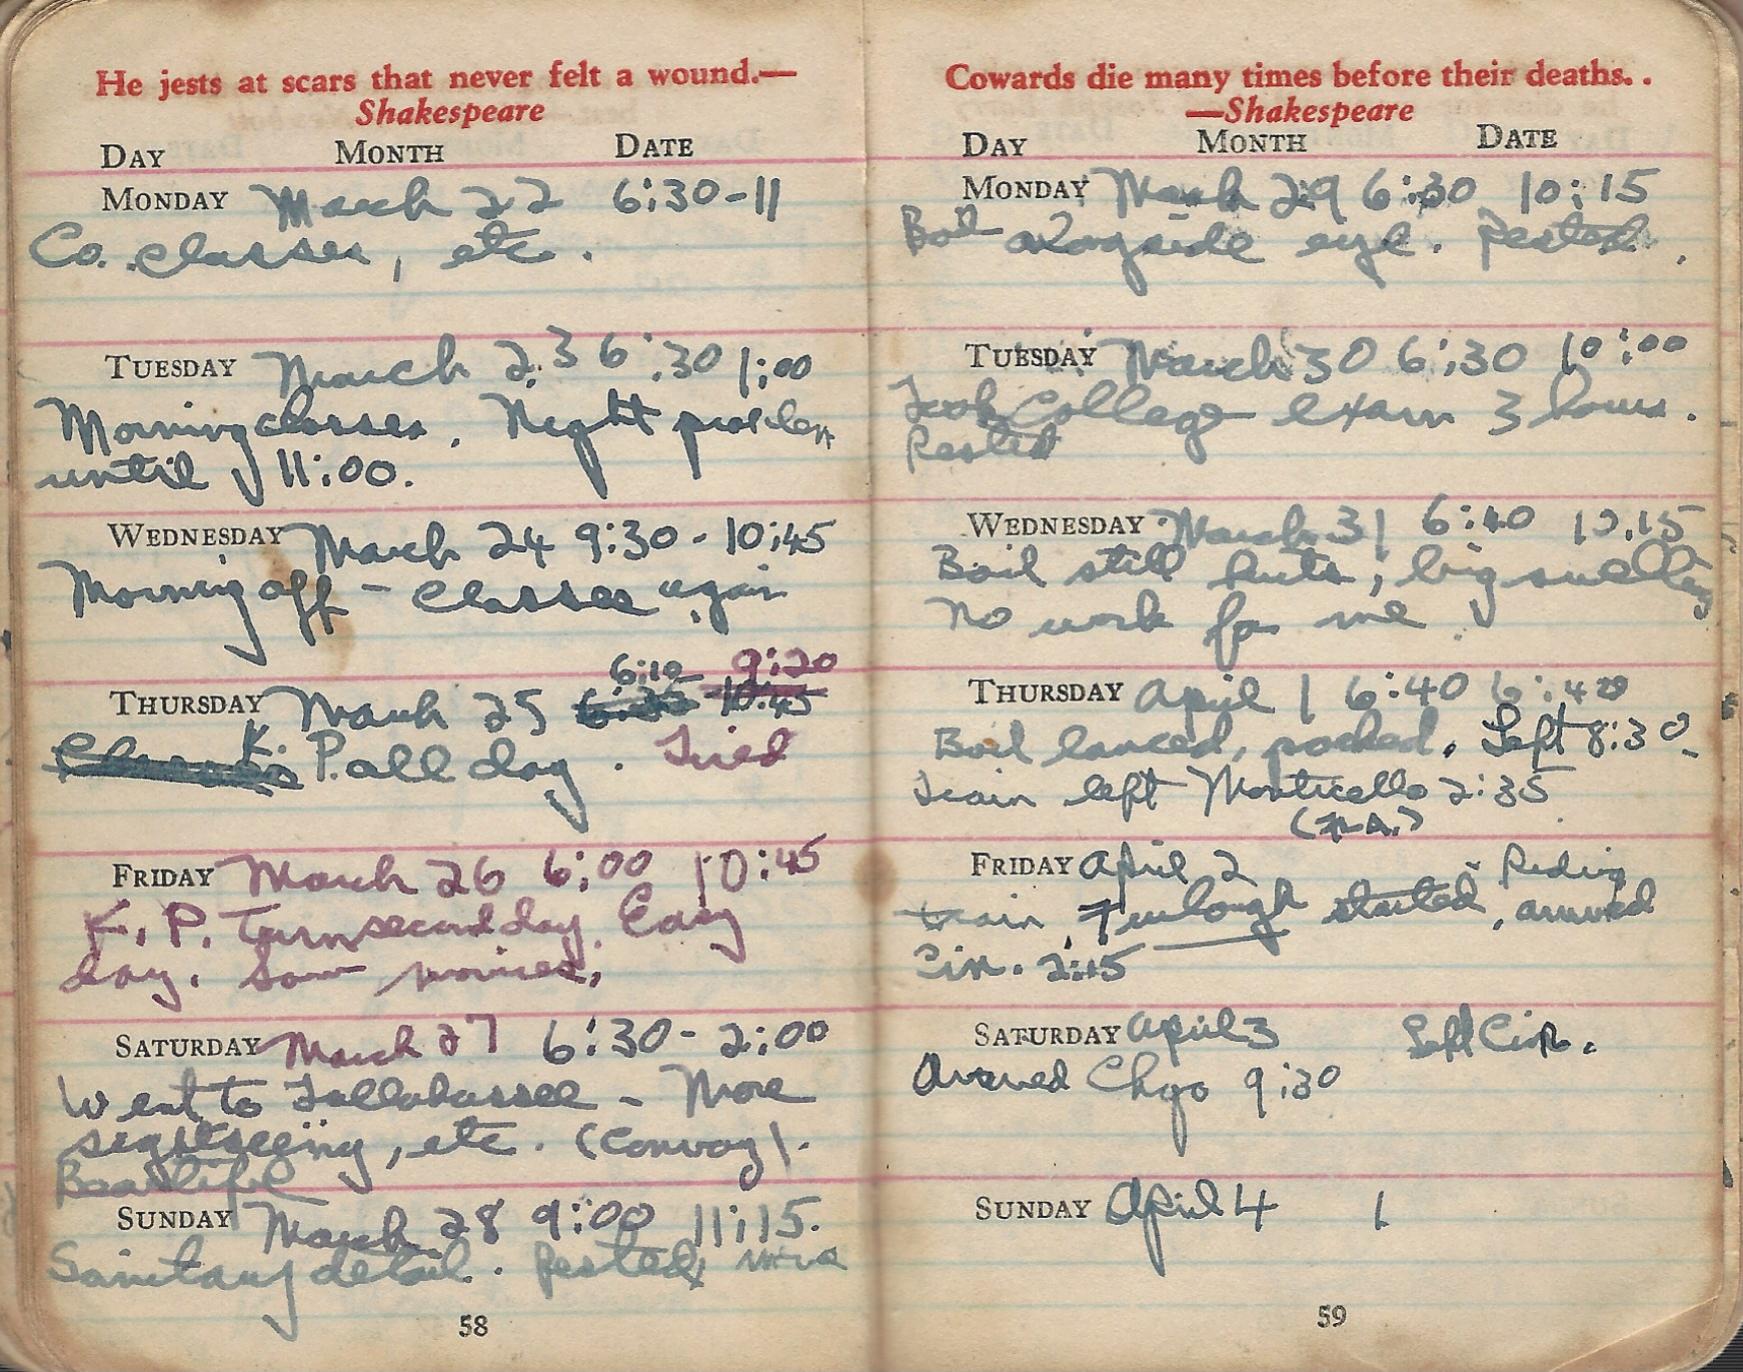 He jests at scars that never felt a wound.—
Shakespeare
DAY MONTH DATE
MONDAY March 22 6:30-11
Co. classes, etc.
TUESDAY March 23 6:30 1:00
Morning classes. Night problem
until 11:00.
WEDNESDAY March 24 9:30 - 10:45
Morning off - classes again
6:10 9:20
THURSDAY March 25 6:35 10:45
Classes K.P. all day. Tired
FRIDAY March 26 6:00 10:45
K.P. Turn second day. Easy
day. Saw movies.
SATURDAY March 27 6:30 - 2:00
Went to Tallahassee - More
sightseeing, etc. (Convoy).
Beautiful
SUNDAY March 28 9:00 11:15.
Sanitary detail. Rested,
58
Cowards die many times before their deaths. .
—Shakespeare
DAY MONTH DATE
MONDAY March 29 6:30 10:15
Boil alongside eye. Rested.
TUESDAY March 30 6:30 10:00
Took College exam 3 hours.
Rested
WEDNESDAY March 31 6:40 10.15
Boil still hurts, big swelling
No work for me.
THURSDAY April 1 6:40 6:40
Boil lanced, packed. Left 8:30
Train left Monticello 2:35
FRIDAY April 2 - Riding
train. Furlough started, arrived
Cin. 2:15
SATURDAY April 3 Left Cin.
Arrived Chgo 9:30
SUNDAY April 4 1
59